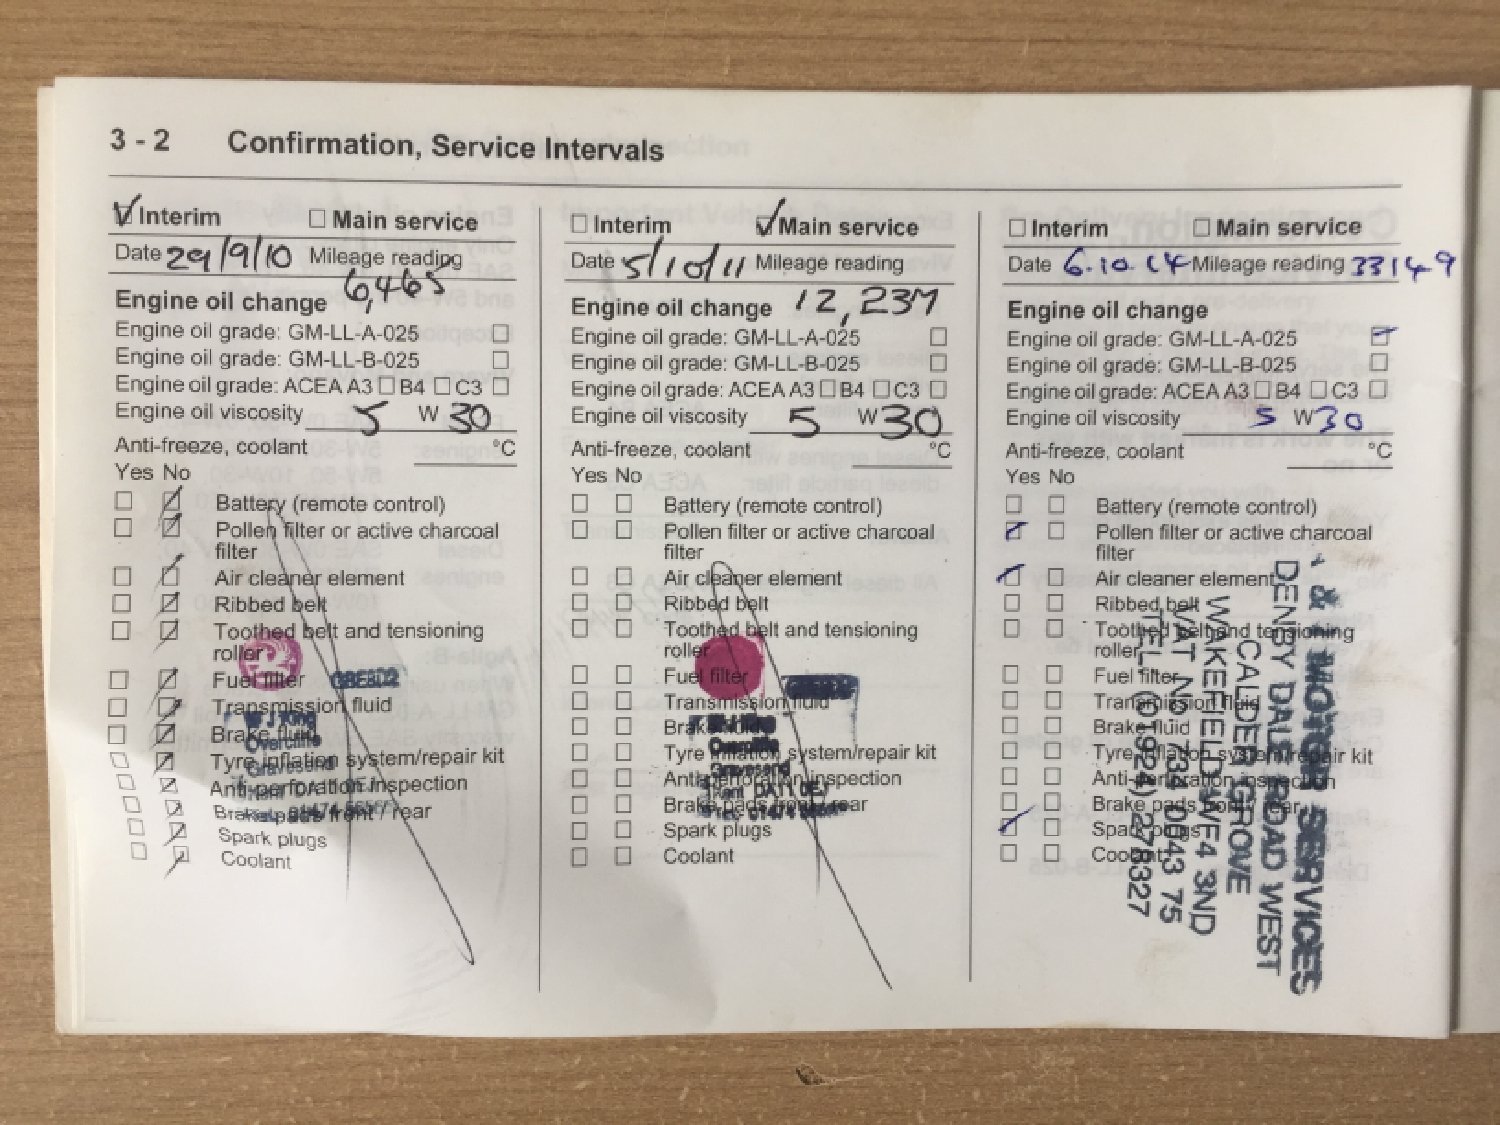 3 - 2 Confirmation, Service Intervals
Interim Main service
Date 29/9/10 Mileage reading
6,465
Engine oil change
Engine oil grade: GM-LL-A-025
Engine oil grade: GM-LL-B-025
Engine oil grade: ACEA A3 B4 C3
Engine oil viscosity 5 W 30
Anti-freeze, coolant °C
Yes No
Battery (remote control)
Pollen filter or active charcoal
filter
Air cleaner element
Ribbed belt
Toothed belt and tensioning
roller
Fuel filter
Transmission fluid
Brake fluid
Tyre inflation system/repair kit
Anti-perforation inspection
Brake pads front / rear
Spark plugs
Coolant
W J King
Overcliffe
Gravesend
Interim Main service
Date 5/10/11 Mileage reading
Engine oil change 12,237
Engine oil grade: GM-LL-A-025
Engine oil grade: GM-LL-B-025
Engine oil grade: ACEA A3 B4 C3
Engine oil viscosity 5 W 30
Anti-freeze, coolant °C
Yes No
Battery (remote control)
Pollen filter or active charcoal
filter
Air cleaner element
Ribbed belt
Toothed belt and tensioning
roller
Fuel filter
Transmission fluid
Brake fluid
Tyre inflation system/repair kit
Anti-perforation inspection
Brake pads front / rear
Spark plugs
Coolant
Overcliffe
Gravesend
Interim Main service
Date 6.10.14 Mileage reading 33149
Engine oil change
Engine oil grade: GM-LL-A-025
Engine oil grade: GM-LL-B-025
Engine oil grade: ACEA A3 B4 C3
Engine oil viscosity 5 W 30
Anti-freeze, coolant °C
Yes No
Battery (remote control)
Pollen filter or active charcoal
filter
Air cleaner element
Ribbed belt
Toothed belt and tensioning
roller
Fuel filter
Transmission fluid
Brake fluid
Tyre inflation system/repair kit
Anti-perforation inspection
Brake pads front / rear
Spark plugs
Coolant
& MOTOR SERVICES
DENBY DALE ROAD WEST
CALDER GROVE
WAKEFIELD WF4 3ND
VAT No 734 0043 75
TEL: (01924) 278327